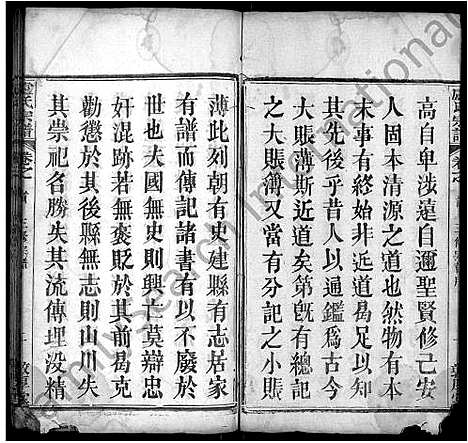 高自卑涉遠自邇聖賢修己安
人固本清源之道也然物有本
末事有終始非近道曷足以知
其先後乎昔人以通鑑爲古今
大賬薄斯近道矣第旣有總記
之大賬薄又當有分記之小賬
薄此列朝有史建縣有志居家
有譜而傳記諸書有以不廢於
世也夫世無史則興亡莫辯忠
奸混跡無褒貶於其前曷克
勸懲於其後縣無志則山川失
其崇祀名勝失其流傳埋没精
盧氏宗譜
卷之首
敦厚堂
FamilySearch International